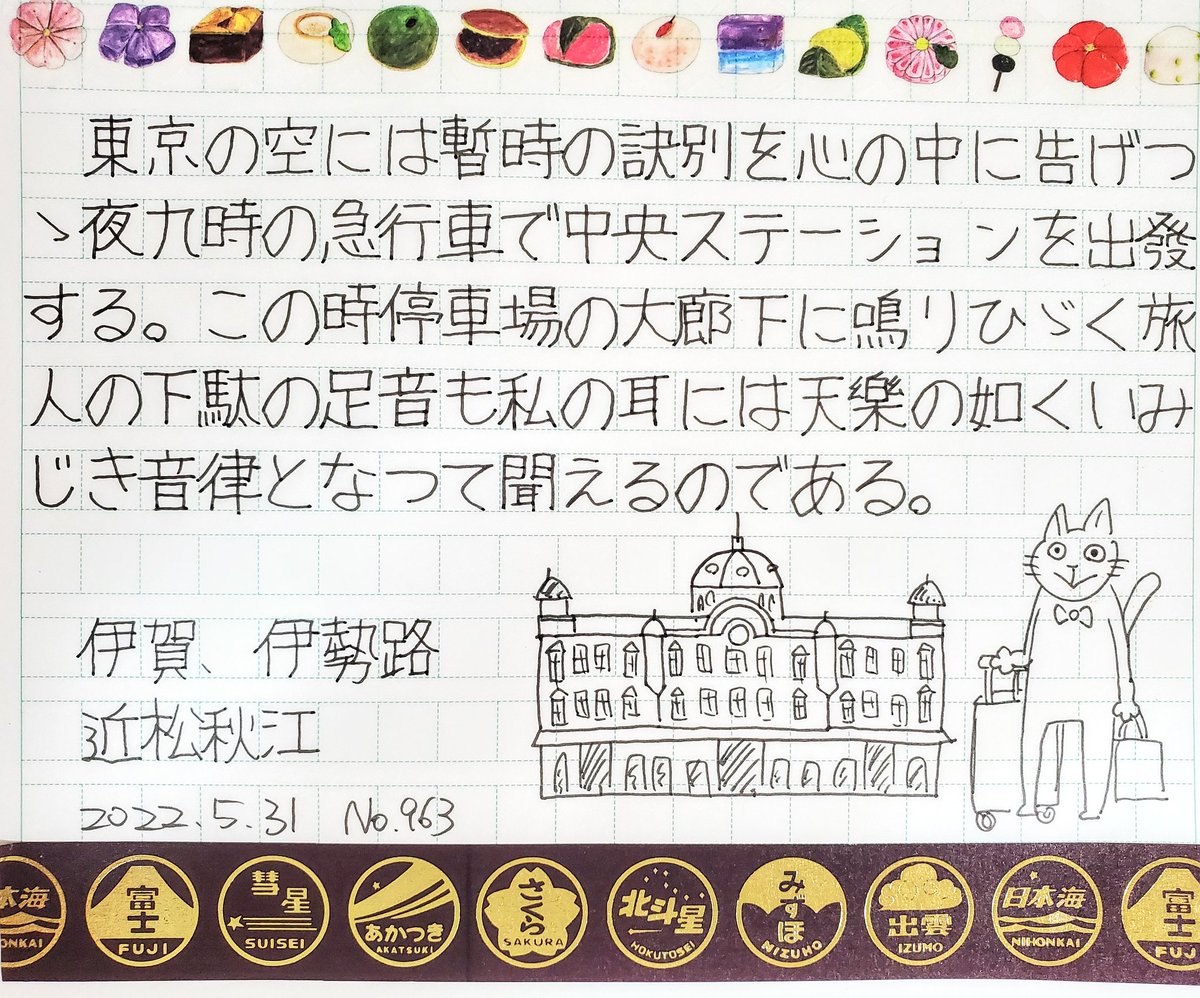 東京の空には暫時の訣別を心の中に告げつ
ゝ夜九時の急行車で中央ステーションを出發
する。この時停車場の大廊下に鳴りひゞく旅
人の下駄の足音も私の耳には天樂の如くいみ
じき音律となつて聞えるのである。
伊賀、伊勢路
近松秋江
2022.5.31 No.963
本海 ONKAI
富士 FUJI
彗星 SUISEI
あかつき AKATSUKI
さくら SAKURA
北斗星 HOKUTOSEI
みずほ MIZUHO
出雲 IZUMO
日本海 NIHONKAI
富士 FUJ